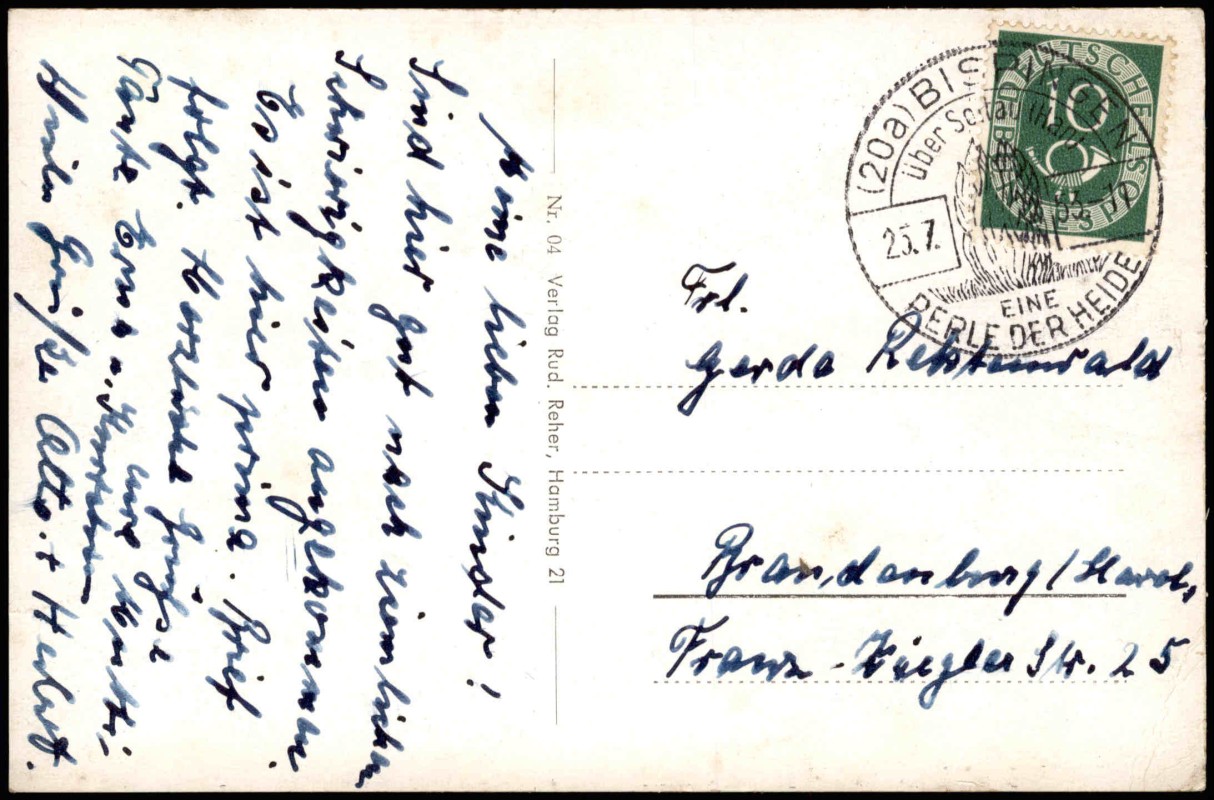 Meine lieben Kinder!
Sind hier gut nach ziemlichen
Schwierigkeiten angekommen.
Es ist hier prima. Brief
folgt. Herzliche Grüße
Tante Erna u. und Mutti
Viele Grüße Otto + Herbert.
Nr. 04 Verlag Rud. Reher, Hamburg 21
DEUTSCHE BUNDESPOST
10
(20a) BISPINGEN
über Soltau (Han)
25.7. 53-19
EINE
PERLE DER HEIDE
Frl.
Gerda Rektenwald
Brandenburg/Havel,
Franz-Ziegler Str. 25